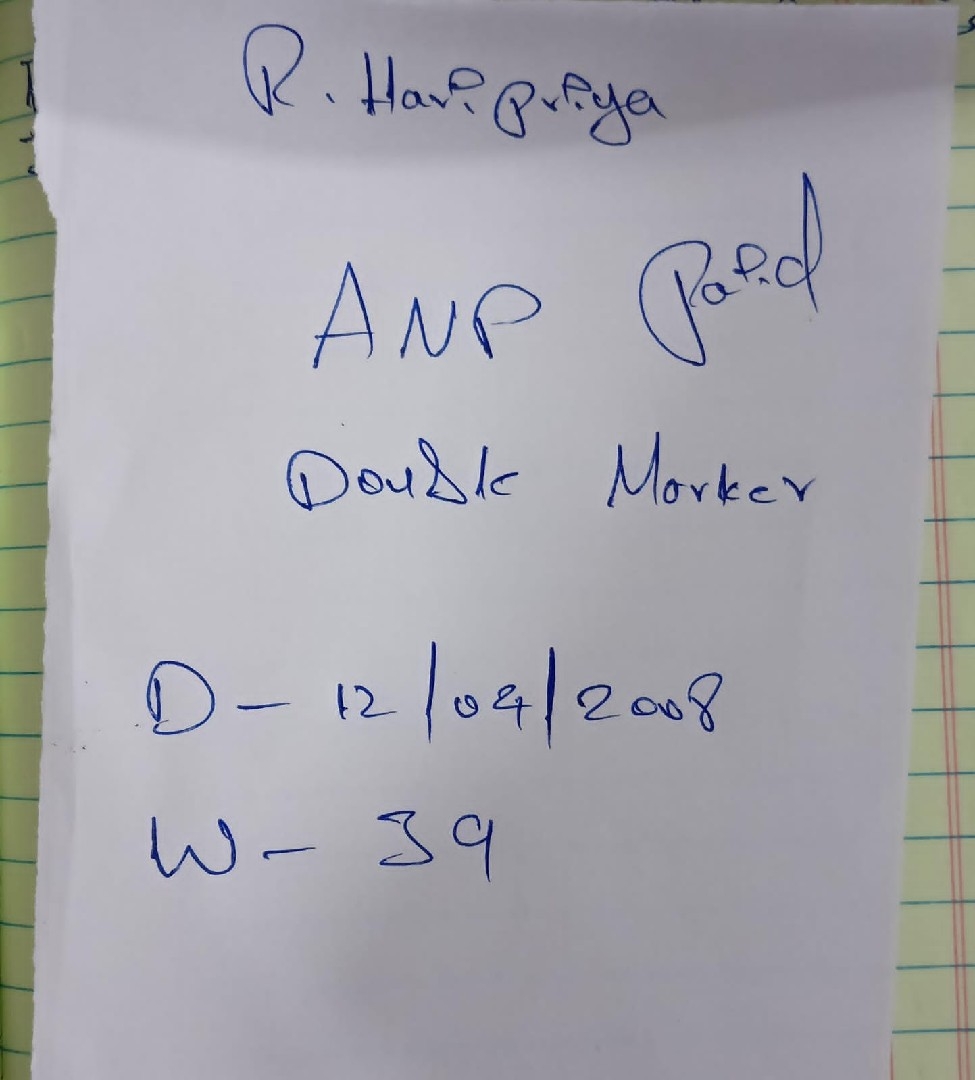 R. Haripriya
ANP Paid
Double Marker
D - 12/04/2008
W - 39